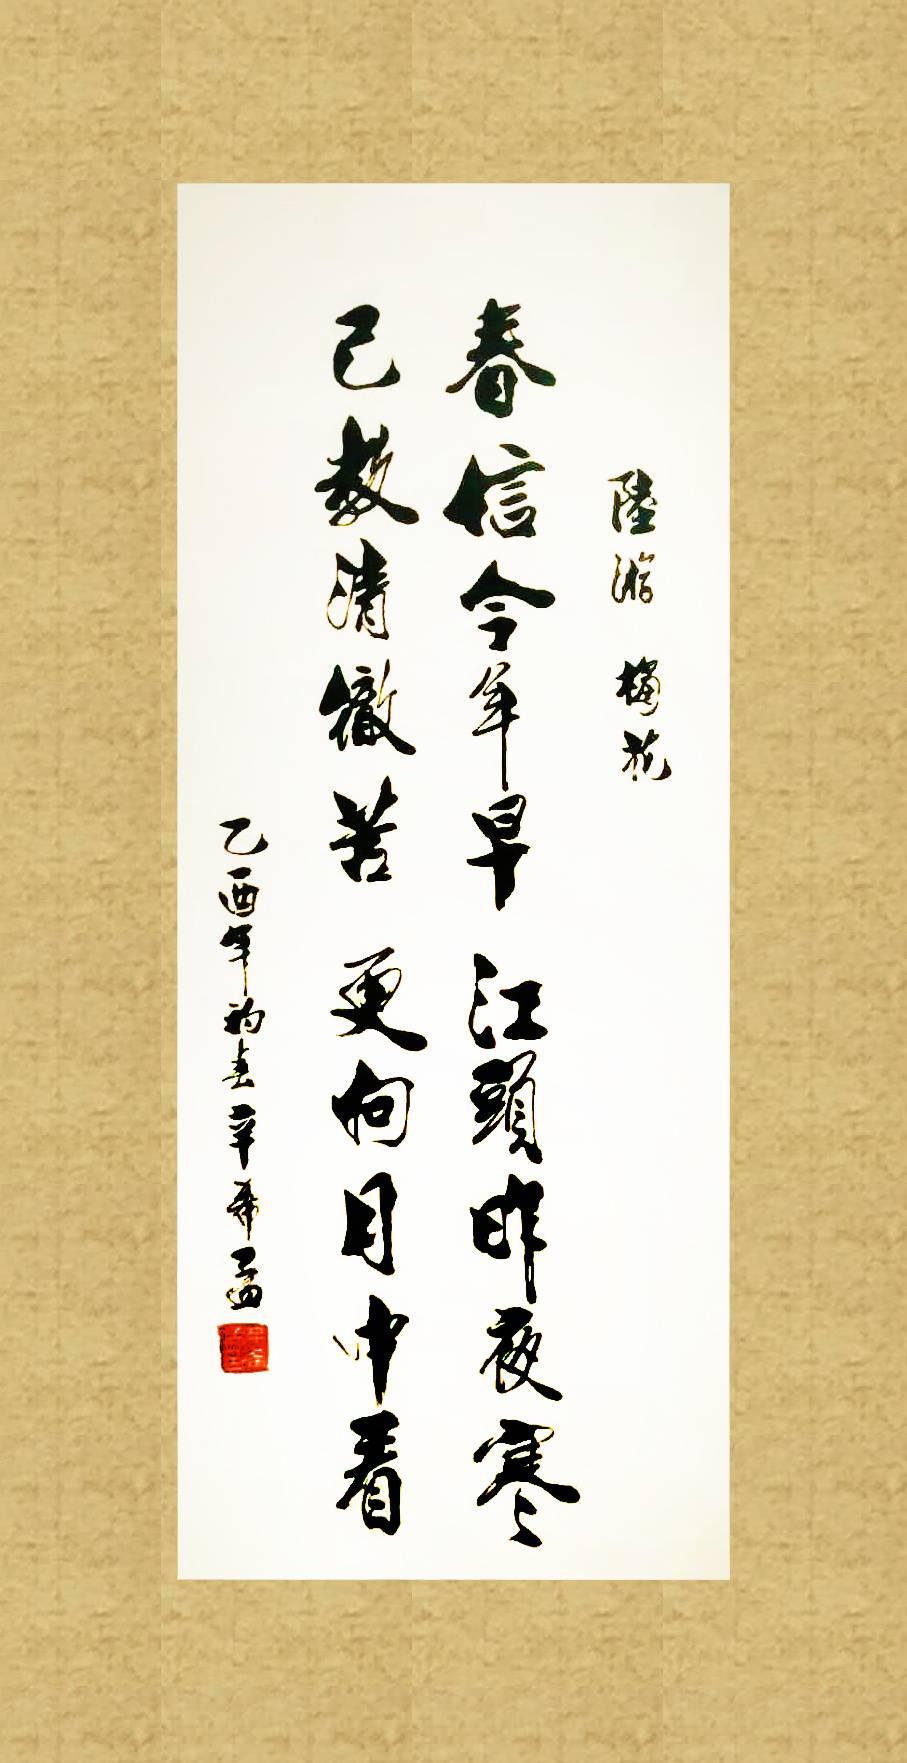 陸游 梅花
春信今年早 江頭昨夜寒
已教清徹苦 更向月中看
乙酉年初春 辛希孟